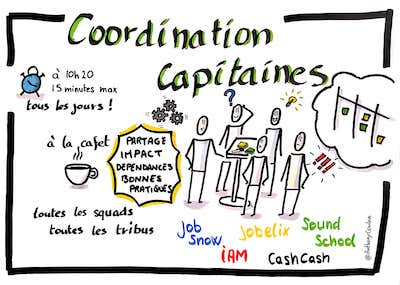 Coordination
Capitaines
à 10h20
15 minutes max
tous les jours !
à la cafet
PARTAGE
IMPACT
DEPENDANCES
BONNES
PRATIQUES
?
!!!
toutes les squads
toutes les tribus
Job
Snow
Jobelix
Sound
School
iAM
CashCash